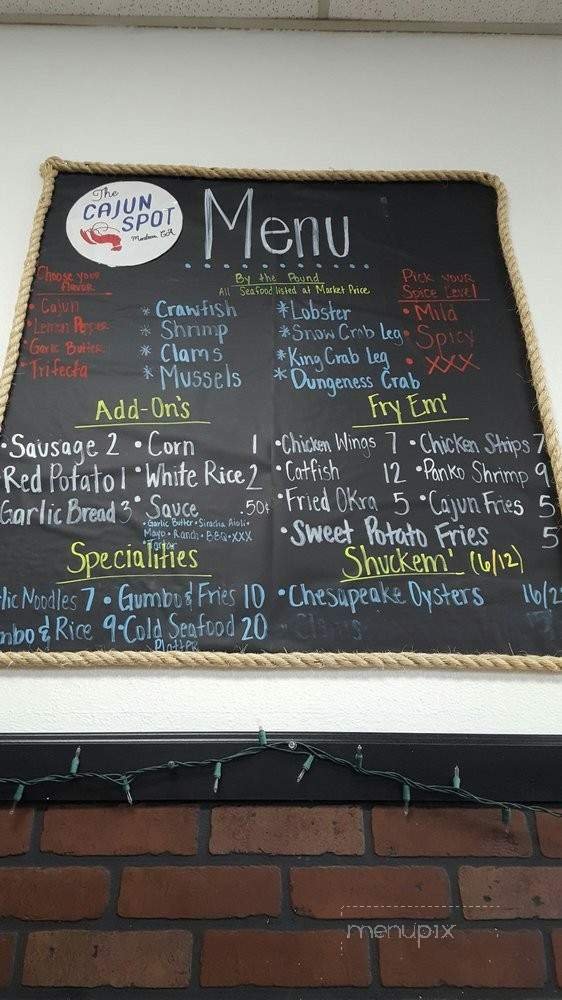 The
CAJUN
SPOT
Menu
By the Pound
All Seafood listed at Market Price
Choose your
flavor
• Cajun
• Lemon Pepper
• Garlic Butter
• Trifecta
* Crawfish
* Shrimp
* Clams
* Mussels
* Lobster
* Snow Crab Leg
* King Crab Leg
* Dungeness Crab
Pick your
Spice Level
• Mild
• Spicy
• XXX
Add-On's
• Sausage 2 • Corn 1
Red Potato 1 • White Rice 2
Garlic Bread 3 • Sauce .50¢
• Garlic Butter • Siracha Aioli •
Mayo • Ranch • BBQ • XXX
Tartar
Fry Em'
• Chicken Wings 7 • Chicken Strips 7
• Catfish 12 • Panko Shrimp 9
• Fried Okra 5 • Cajun Fries 5
• Sweet Potato Fries 5
Specialities
lic Noodles 7 • Gumbo & Fries 10
mbo & Rice 9 • Cold Seafood 20
Platter
Shuckem' (6/12)
• Chesapeake Oysters 16/2
• Clams
menupix